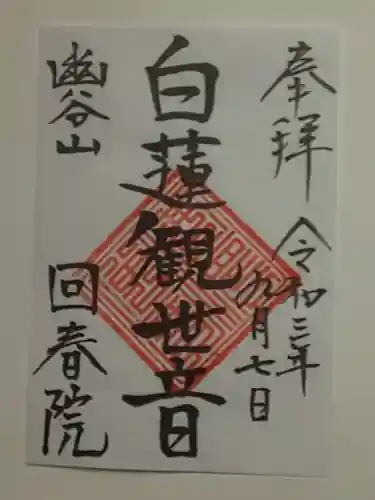 奉拝
令和三年
九月七日
白蓮觀世音
幽谷山
回春院